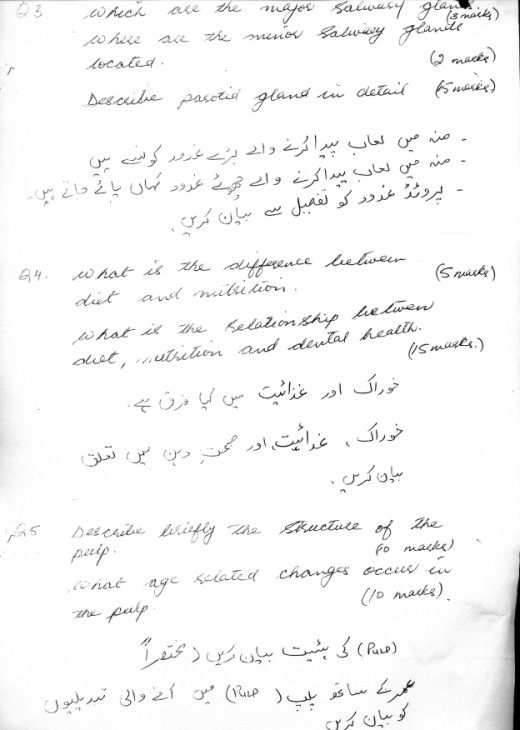 Q3. which are the major salivary glands
(3 marks)
where are the minor salivary glands
located. (2 marks)
Describe parotid gland in detail (15 marks)
- منہ میں لعاب پیدا کرنے والے بڑے غدود کونسے ہیں
- منہ میں لعاب پیدا کرنے والے چھوٹے غدود کہاں پائے جاتے ہیں۔
- پروٹڈ غدود کو تفصیل سے بیان کریں۔
Q4. what is the difference between
diet and nutrition. (5 marks)
what is the relationship between
diet, nutrition and dental health.
(15 marks.)
خوراک اور غذائیت میں کیا فرق ہے۔
خوراک، غذائیت، اور صحت دہن میں تعلق
بیان کریں۔
Q5 Describe briefly the structure of the
pulp. (10 marks)
what age related changes occur in
the pulp. (10 marks).
(Pulp) کی ہئیت بیان کریں (مختصراً
عمر کے ساتھ پلپ (Pulp) میں آنے والی تبدیلیوں
کو بیان کریں